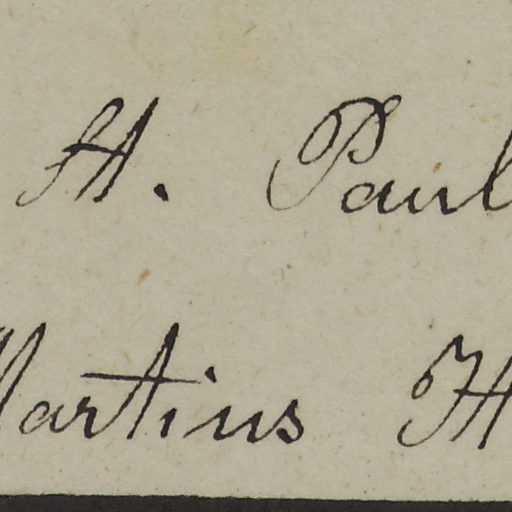 H. Paul
Martins H